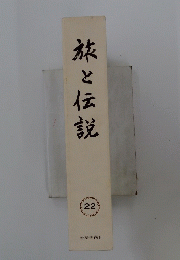 旅と伝説
22